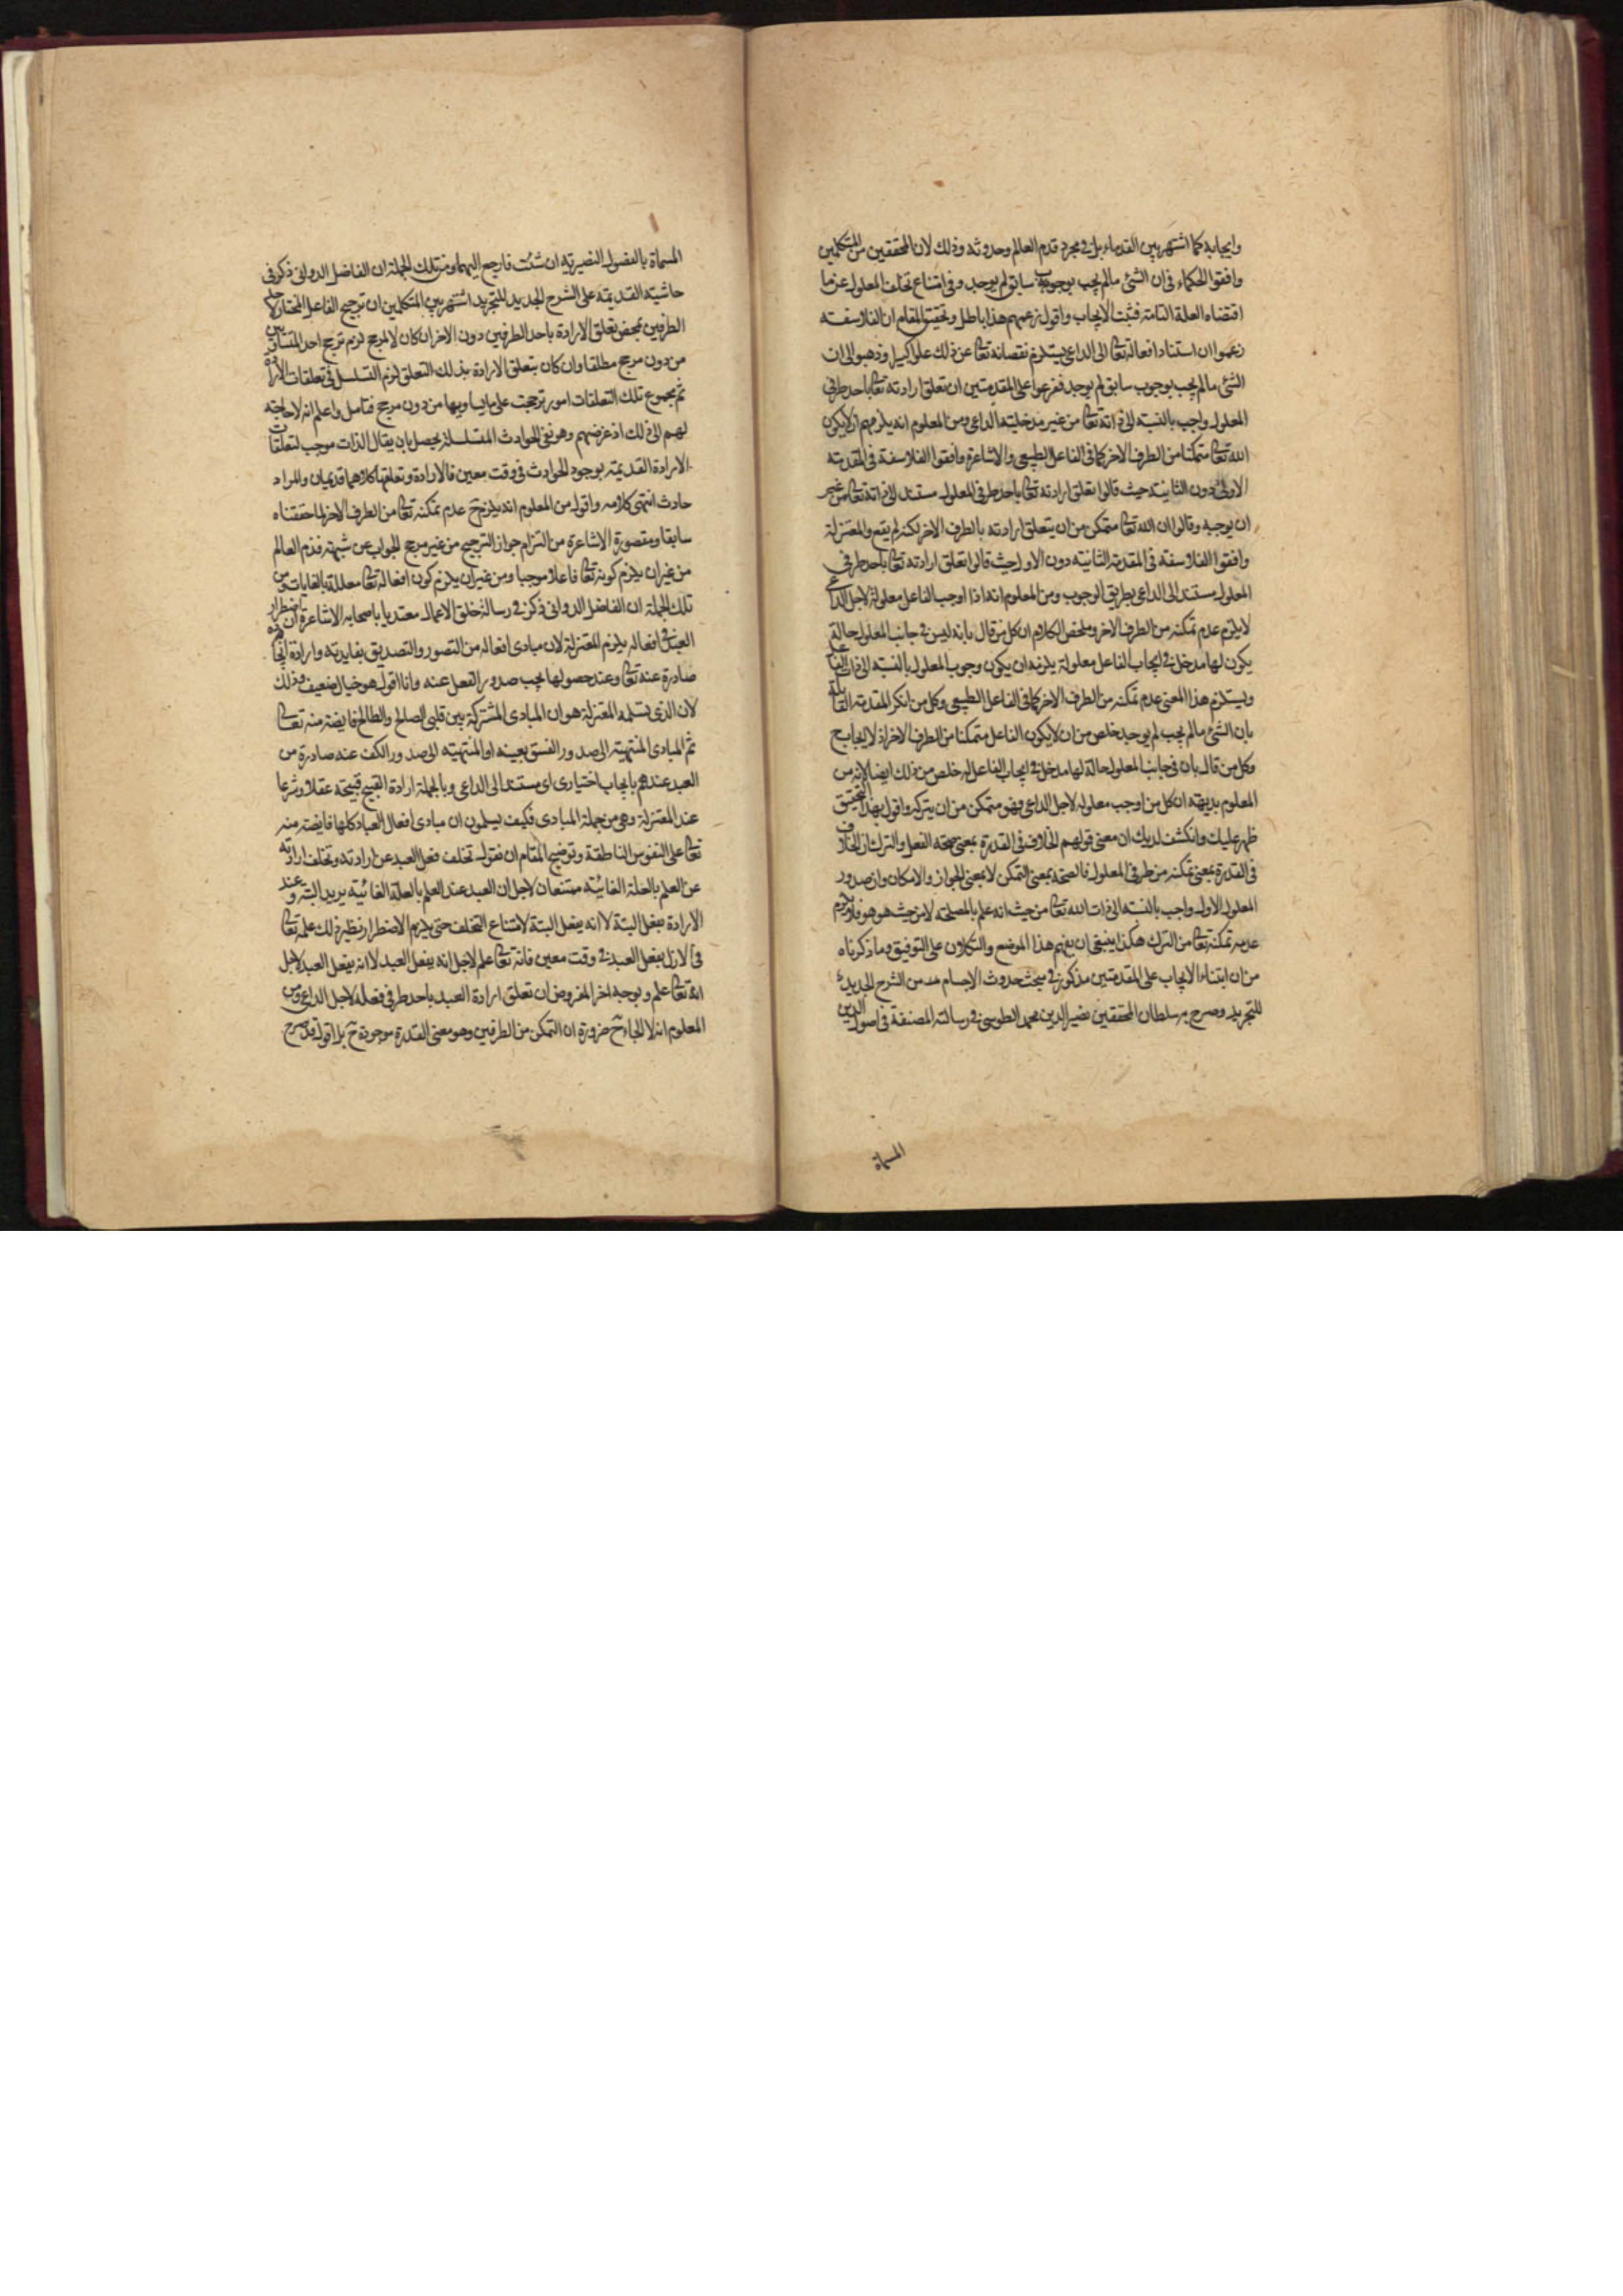 وايجابه كما اشتهر بين القدماء بل في مجرد قدم العالم وحدوثه وذلك لان المحققين من المتكلمين
وافقوا الحكماء في ان الشئ مالم يجب بوجوب سابق لم يوجد وفي امتناع تخلف المعلول عن ما
اقتضاه العلة التامة فثبت الايجاب واقول زعمهم هذا باطل وتحقيق المقام ان الفلاسفة
زعموا ان استناد افعاله تعالى الى الداعى يستلزم نقصانه تعالى عن ذلك علوا كبيرا وذهبوا الى ان
الشئ مالم يجب بوجوب سابق لم يوجد ففرعوا على المقدمتين ان تعلق ارادته تعالى باحد طرفى
المعلول واجب بالنسبة الى ذاته تعالى من غير مدخلية الداعى ومن المعلوم انه يلزمهم ان لايكون
الله تعالى متمكنا من الطرف الاخر كما في الفاعل الطبيعى والاشاعرة وافقوا الفلاسفة في المقدمة
الاولى دون الثانية حيث قالوا تعلق ارادته تعالى باحد طرفى المعلول مستند الى ذاته تعالى من غير
ان يوجبه وقالوا ان الله تعالى متمكن من ان يتعلق ارادته بالطرف الاخر لكنه لم يقع والمعتزلة
وافقوا الفلاسفة في المقدمة الثانية دون الاولى حيث قالوا تعلق ارادته تعالى باحد طرفى
المعلول مستند الى الداعى بطريق الوجوب ومن المعلوم انه اذا اوجب الفاعل معلوله لاجل الداعى
لايلزم عدم تمكنه من الطرف الاخر وملخص الكلام ان كل من قال بانه ليس في جانب المعلول حالة
يكون لها مدخل في ايجاب الفاعل معلوله يلزمه ان يكون وجوب المعلول بالنسبة الى ذات الفاعل
ويستلزم هذا المعنى عدم تمكنه من الطرف الاخر كما في الفاعل الطبيعى وكل من انكر المقدمة القائلة
بان الشئ مالم يجب لم يوجد خلص من ان لايكون الفاعل متمكنا من الطرف الاخر اذ لا ايجاب ح
وكل من قال بان في جانب المعلول حالة لها مدخل في ايجاب الفاعل له خلص من ذلك ايضا لانه من
المعلوم بديهة ان كل من اوجب معلوله لاجل الداعى فهو متمكن من ان يتركه واقول بهذا التحقيق
ظهر عليك وانكشف لديك ان معنى قولهم الخلاف في القدرة بمعنى صحة الفعل والترك ان الخلاف
في القدرة بمعنى تمكنه من طرفى المعلول فالصحة بمعنى التمكن لا بمعنى الجواز والامكان وان صدور
المعلول الاول واجب بالنسبة الى ذات الله تعالى من حيث انه علم بالمصلحة لا من حيث هو هو فلا يلزم
عدم تمكنه تعالى من الترك هكذا ينبغى ان يفهم هذا الموضع والتكلان على التوفيق وما ذكرناه
من ان ابتناء الايجاب على المقدمتين مذكور في مبحث حدوث الاجسام من الشرح الجديد
للتجريد وصرح به سلطان المحققين نصير الدين محمد الطوسى في رسالته المصنفة في اصول الدين
المسماة
المسماة بالفصول النصيرية ان شئت فارجع اليهما ومن تلك الجملة ان الفاضل الدوانى ذكر في
حاشيته القديمة على الشرح الجديد للتجريد اشتهر بين المتكلمين ان ترجيح الفاعل المختار لاحد
الطرفين بمحض تعلق الارادة باحد الطرفين دون الاخر ان كان لا لمرجح لزم ترجح احد المتساويين
من دون مرجح مطلقا وان كان بتعلق الارادة بذلك التعلق لزم التسلسل في تعلقات الارادة
ثم مجموع تلك التعلقات امور ترجحت على مايساويها من دون مرجح فتامل واعلم انه لا حاجة
لهم الى ذلك اذ غرضهم وهو نفى الحوادث المتسلسلة يحصل بان يقال الذات موجب لتعلقات
الارادة القديمة بوجود الحوادث في وقت معين فالارادة وتعلقها كلاهما قديمان والمراد
حادث انتهى كلامه واقول من المعلوم انه يلزم ح عدم تمكنه تعالى من الطرف الاخر لما حققناه
سابقا ومقصورة الاشاعرة من التزام جواز الترجيح من غير مرجح الجواب عن شبهة قدم العالم
من غير ان يلزم كونه تعالى فاعلا موجبا ومن غير ان يلزم كون افعاله تعالى معللة بالغايات ومن
تلك الجملة ان الفاضل الدوانى ذكر في رسالة خلق الاعمال معتديا باصحابه الاشاعرة ان اضطرار
العبد في افعاله يلزم المعتزلة لان مبادى افعاله من التصور والتصديق بفايدته وارادة
صادرة عنه تعالى وعند حصولها يجب صدور الفعل عنه وانا اقول هو خيال ضعيف وذلك
لان الذى يسلمه المعتزلة هو ان المبادى المشتركة بين قلبى الصالح والطالح فايضة منه تعالى
ثم المبادى المنتهية الى صدور الفسق بعينه او المنتهية الى صدور الكف عنه صادرة من
العبد عندهم بايجاب اختيارى اى مستند الى الداعى وبالجملة ارادة القبيح قبيحة عقلا وشرعا
عند المعتزلة وهى من جملة المبادى فكيف يسلمون ان مبادى افعال العباد كلها فايضة منه
تعالى على النفوس الناطقة وتوضيح المقام ان نقول تخلف فعل العبد عن ارادته وتخلف ارادته
عن العلم بالعلة الغائية ممتنعان لاجل ان العبد عند العلم بالعلة الغائية يريد البتة وعند
الارادة يفعل البتة لا انه يفعل البتة لامتناع التخلف حتى يلزم الاضطرار ونظير ذلك علمه تعالى
في الازل بفعل العبد في وقت معين فانه تعالى علم لاجل انه يفعل العبد لا انه يفعل العبد لاجل
انه تعالى علم وبوجه اخر المفروض ان تعلق ارادة العبد باحد طرفى فعله لاجل الداعى ومن
المعلوم انه لا الجاء ح ضرورة ان التمكن من الطرفين وهو معنى القدرة موجودة ح بل اقول قد صرح